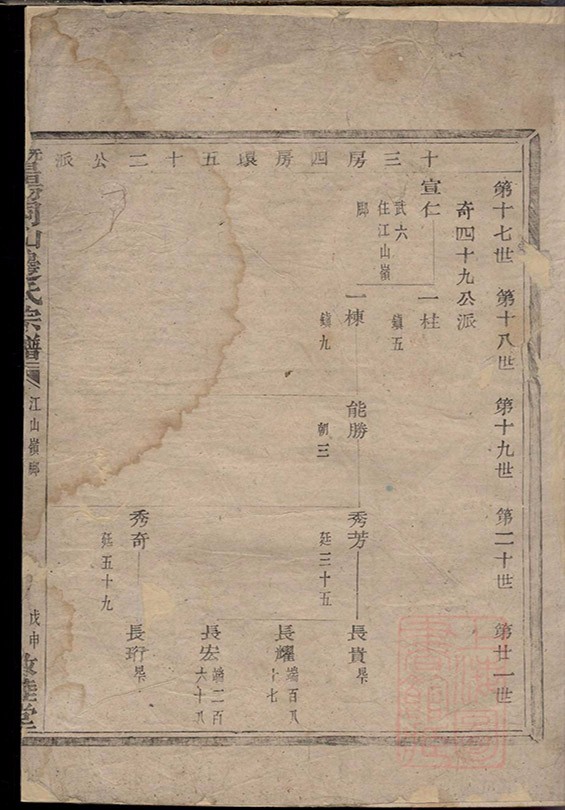 十三房四房環五十二公派
第十七世
第十八世
第十九世
第二十世
第廿一世
奇四十九公派
宣仁
武六
住江山嶺
廊
一桂
鎮五
一棟
鎮九
能勝
朝三
秀芳
廷三十五
長貴
長耀
端百八
十七
長宏
端二百
六十八
秀奇
廷五十九
長珩
山
氏宗譜
江山嶺廊
戊申
堂